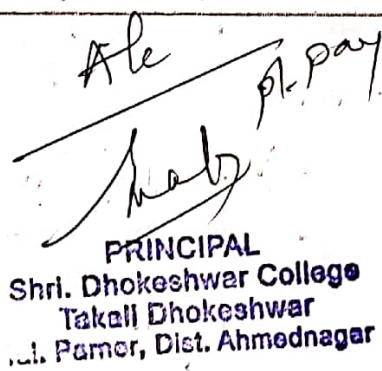 A/c
pl. pay
PRINCIPAL
Shri. Dhokeshwar College
Takali Dhokeshwar
Parner, Dist. Ahmednagar